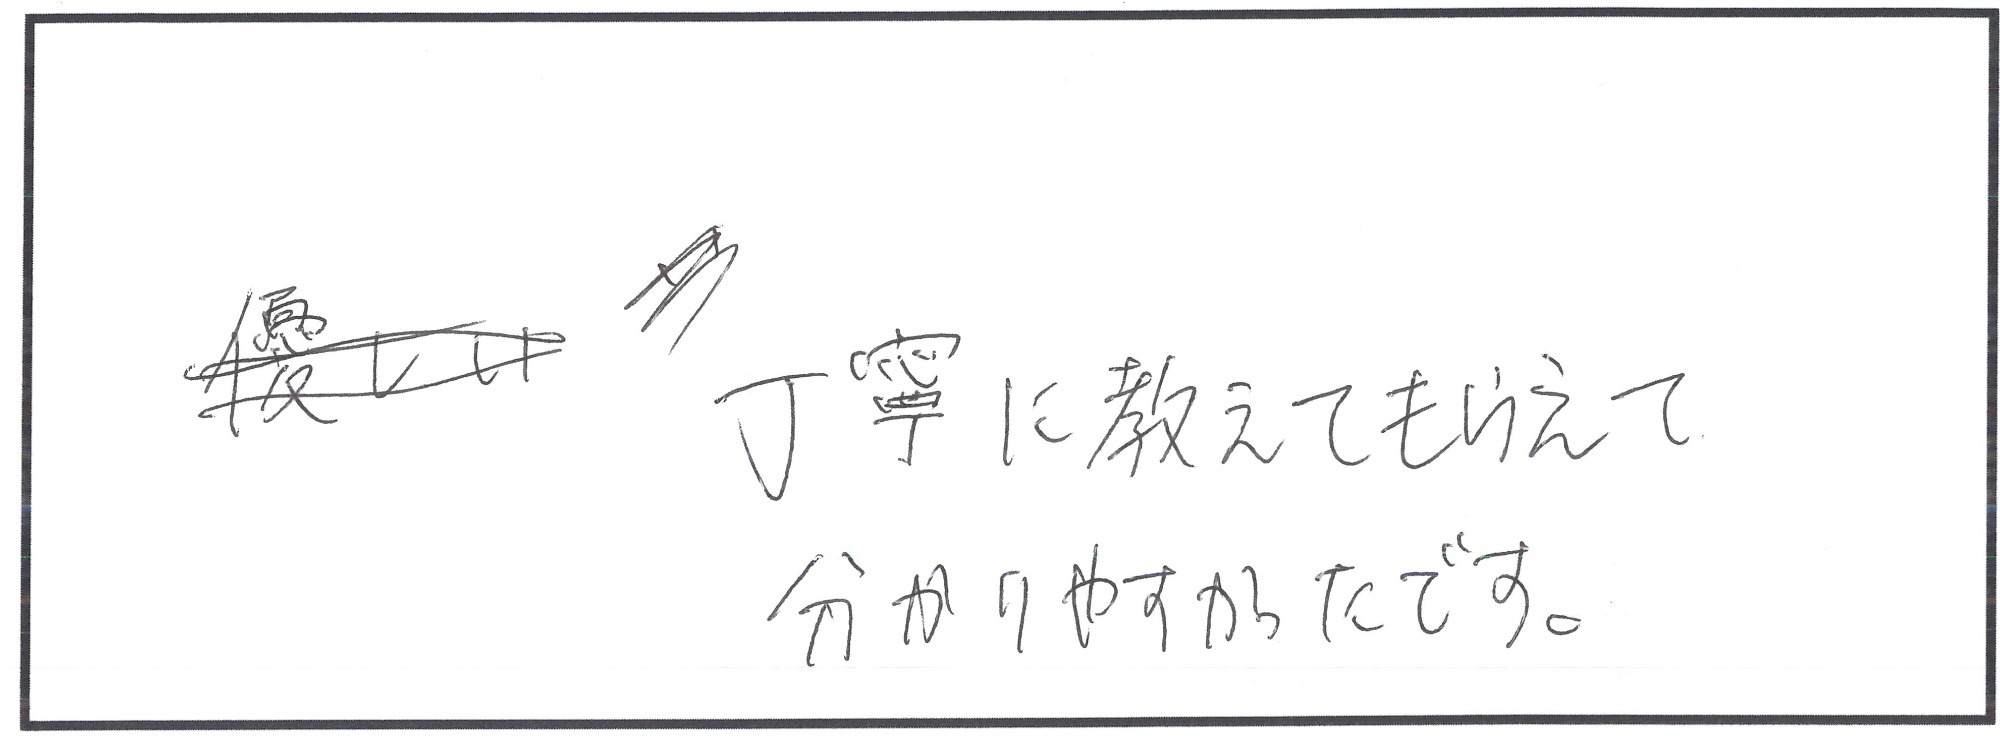 丁寧に教えてもらえて
分かりやすかったです。